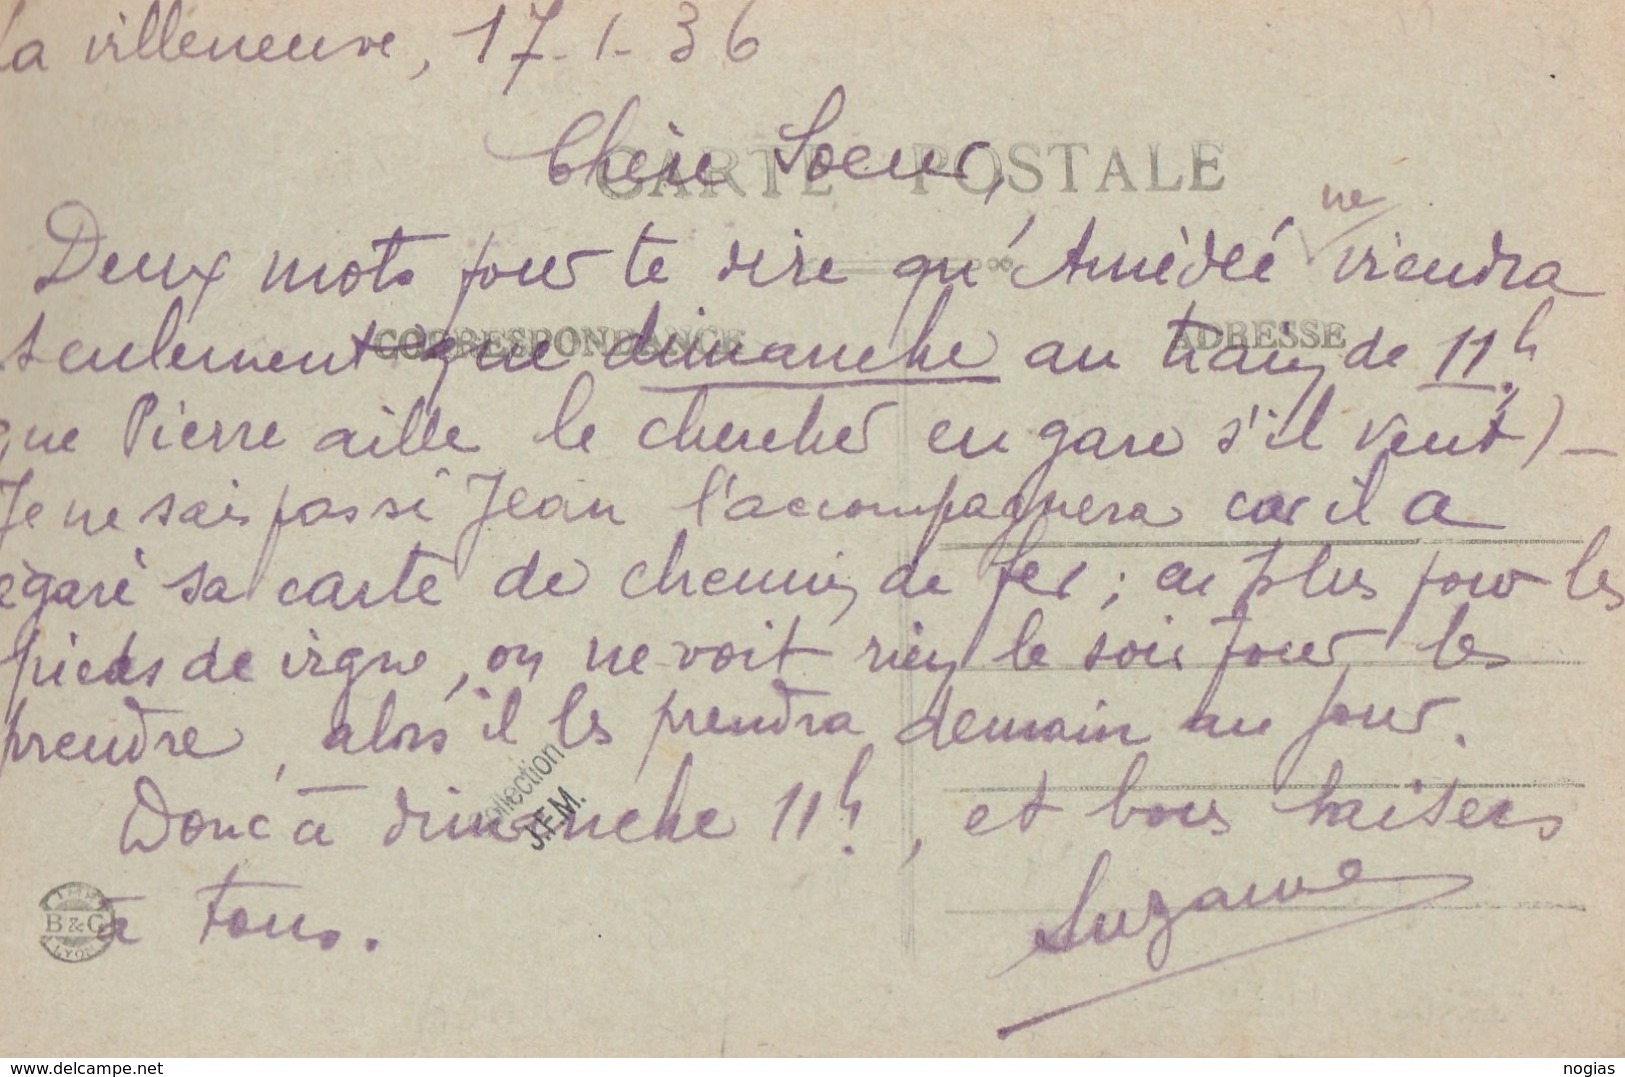 La villeneuve, 17-1-36
Chère Soeur,
CARTE POSTALE
ne
Deux mots pour te dire qu'Amédée viendra
CORRESPONDANCE
ADRESSE
seulement que dimanche au train de 11h
que Pierre aille le chercher en gare s'il veut) -
Je ne sais pas si Jean l'accompagnera car il a
égaré sa carte de chemin de fer ; en plus pour les
pieds de vigne, on ne voit rien le soir pour les
prendre, alors il les prendra demain au jour.
Donc à dimanche 11h, et bons baisers
à tous.
Suzanne
collection
J.F.M.
IMP.
B & G
LYON
© delcampe.net
nogias